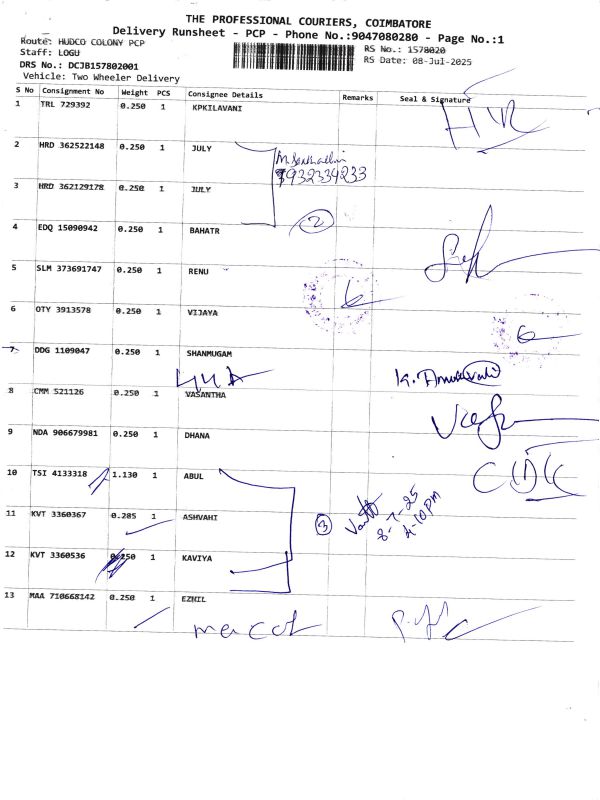 THE PROFESSIONAL COURIERS, COIMBATORE
Delivery Runsheet - PCP - Phone No.:9047080280 - Page No.:1
Route: HUDCO COLONY PCP
RS No.: 1578020
Staff: LOGU
RS Date: 08-Jul-2025
DRS No.: DCJB157802001
Vehicle: Two Wheeler Delivery
S No Consignment No Weight PCS Consignee Details Remarks Seal & Signature
1 TRL 729392 0.250 1 KPKILAVANI
2 HRD 362522148 0.250 1 JULY
9932334233
3 HRD 362129178 0.250 1 JULY
2
4 EDQ 15090942 0.250 1 BAHATR
5 SLM 373691747 0.250 1 RENU
6
6 OTY 3913578 0.250 1 VIJAYA
6
7 DDG 1109047 0.250 1 SHANMUGAM
8 CMM 521126 0.250 1 VASANTHA
9 NDA 906679981 0.250 1 DHANA
10 TSI 4133318 1.130 1 ABUL
11 KVT 3360367 0.285 1 ASHVAHI
3
8-7-25
4-10PM
12 KVT 3360536 0.250 1 KAVIYA
13 MAA 710668142 0.250 1 EZHIL